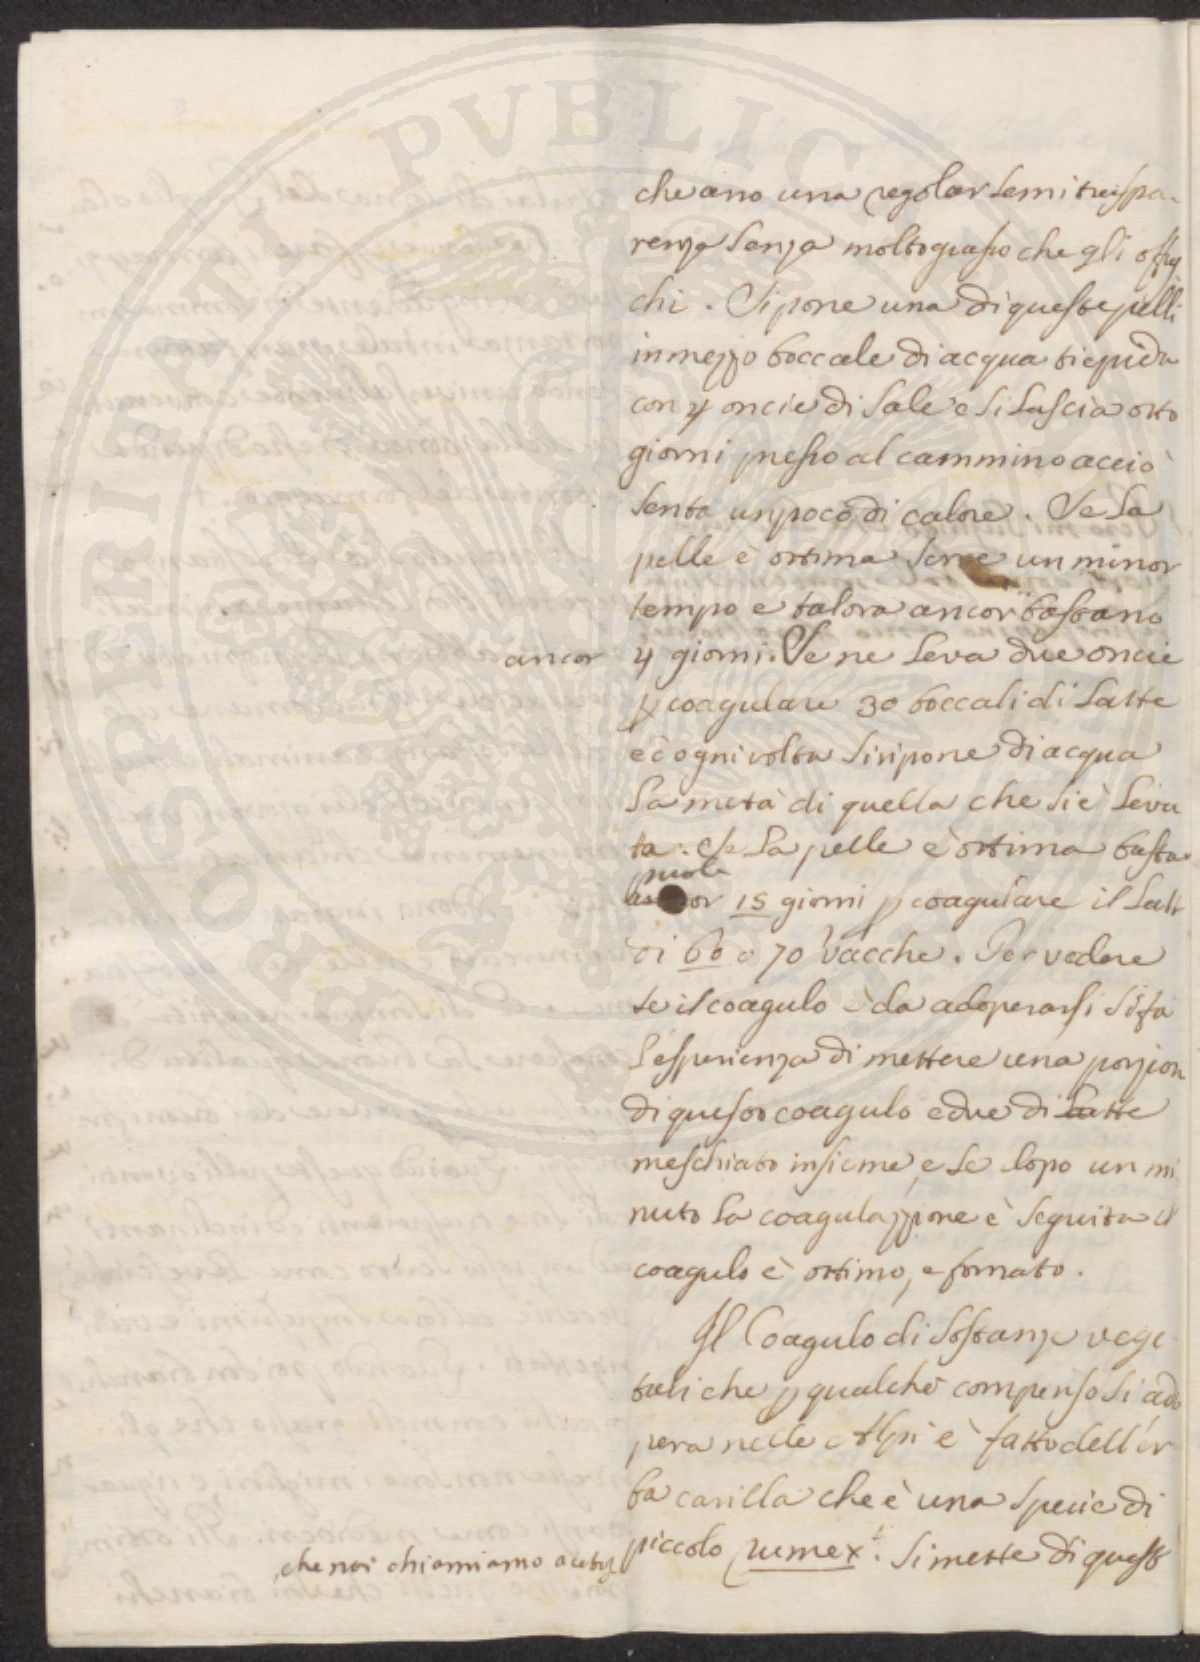 PROSPERITATI PUBLICAE
che ano una regolar semitraspa-
renza senza molto grasso che gli offus
chi. Si pone una di queste pelli
in mezzo boccale di acqua tiepida
con 4 oncie di sale e si lascia otto
giorni presso al cammino acciò
senta un poco di calore. Se la
pelle è ottima serve un minor
tempo e talora ancor bastano
ancor
4 giorni. Se ne leva due oncie
p coagulare 30 boccali di latte
e ogni volta si ripone di acqua
la metà di quella che si è leva
ta. Se la pelle è ottima basta
15 giorni p coagulare il latt
di 60 o 70 vacche. Per vedere
se il coagulo è da adoperarsi si fa
l'esperienza di mettere una porzion
di questo coagulo e due di latte
meschiato insieme, e se dopo un mi
nuto la coagulazzione è seguita il
coagulo è ottimo, e formato.
Il Coagulo di sostanze vege
tali che p qualche compenso si ado
pera nelle Alpi è fatto dell'er
ba carilla che è una specie di
piccolo rumex. Si mette di quest
che noi chiamiamo